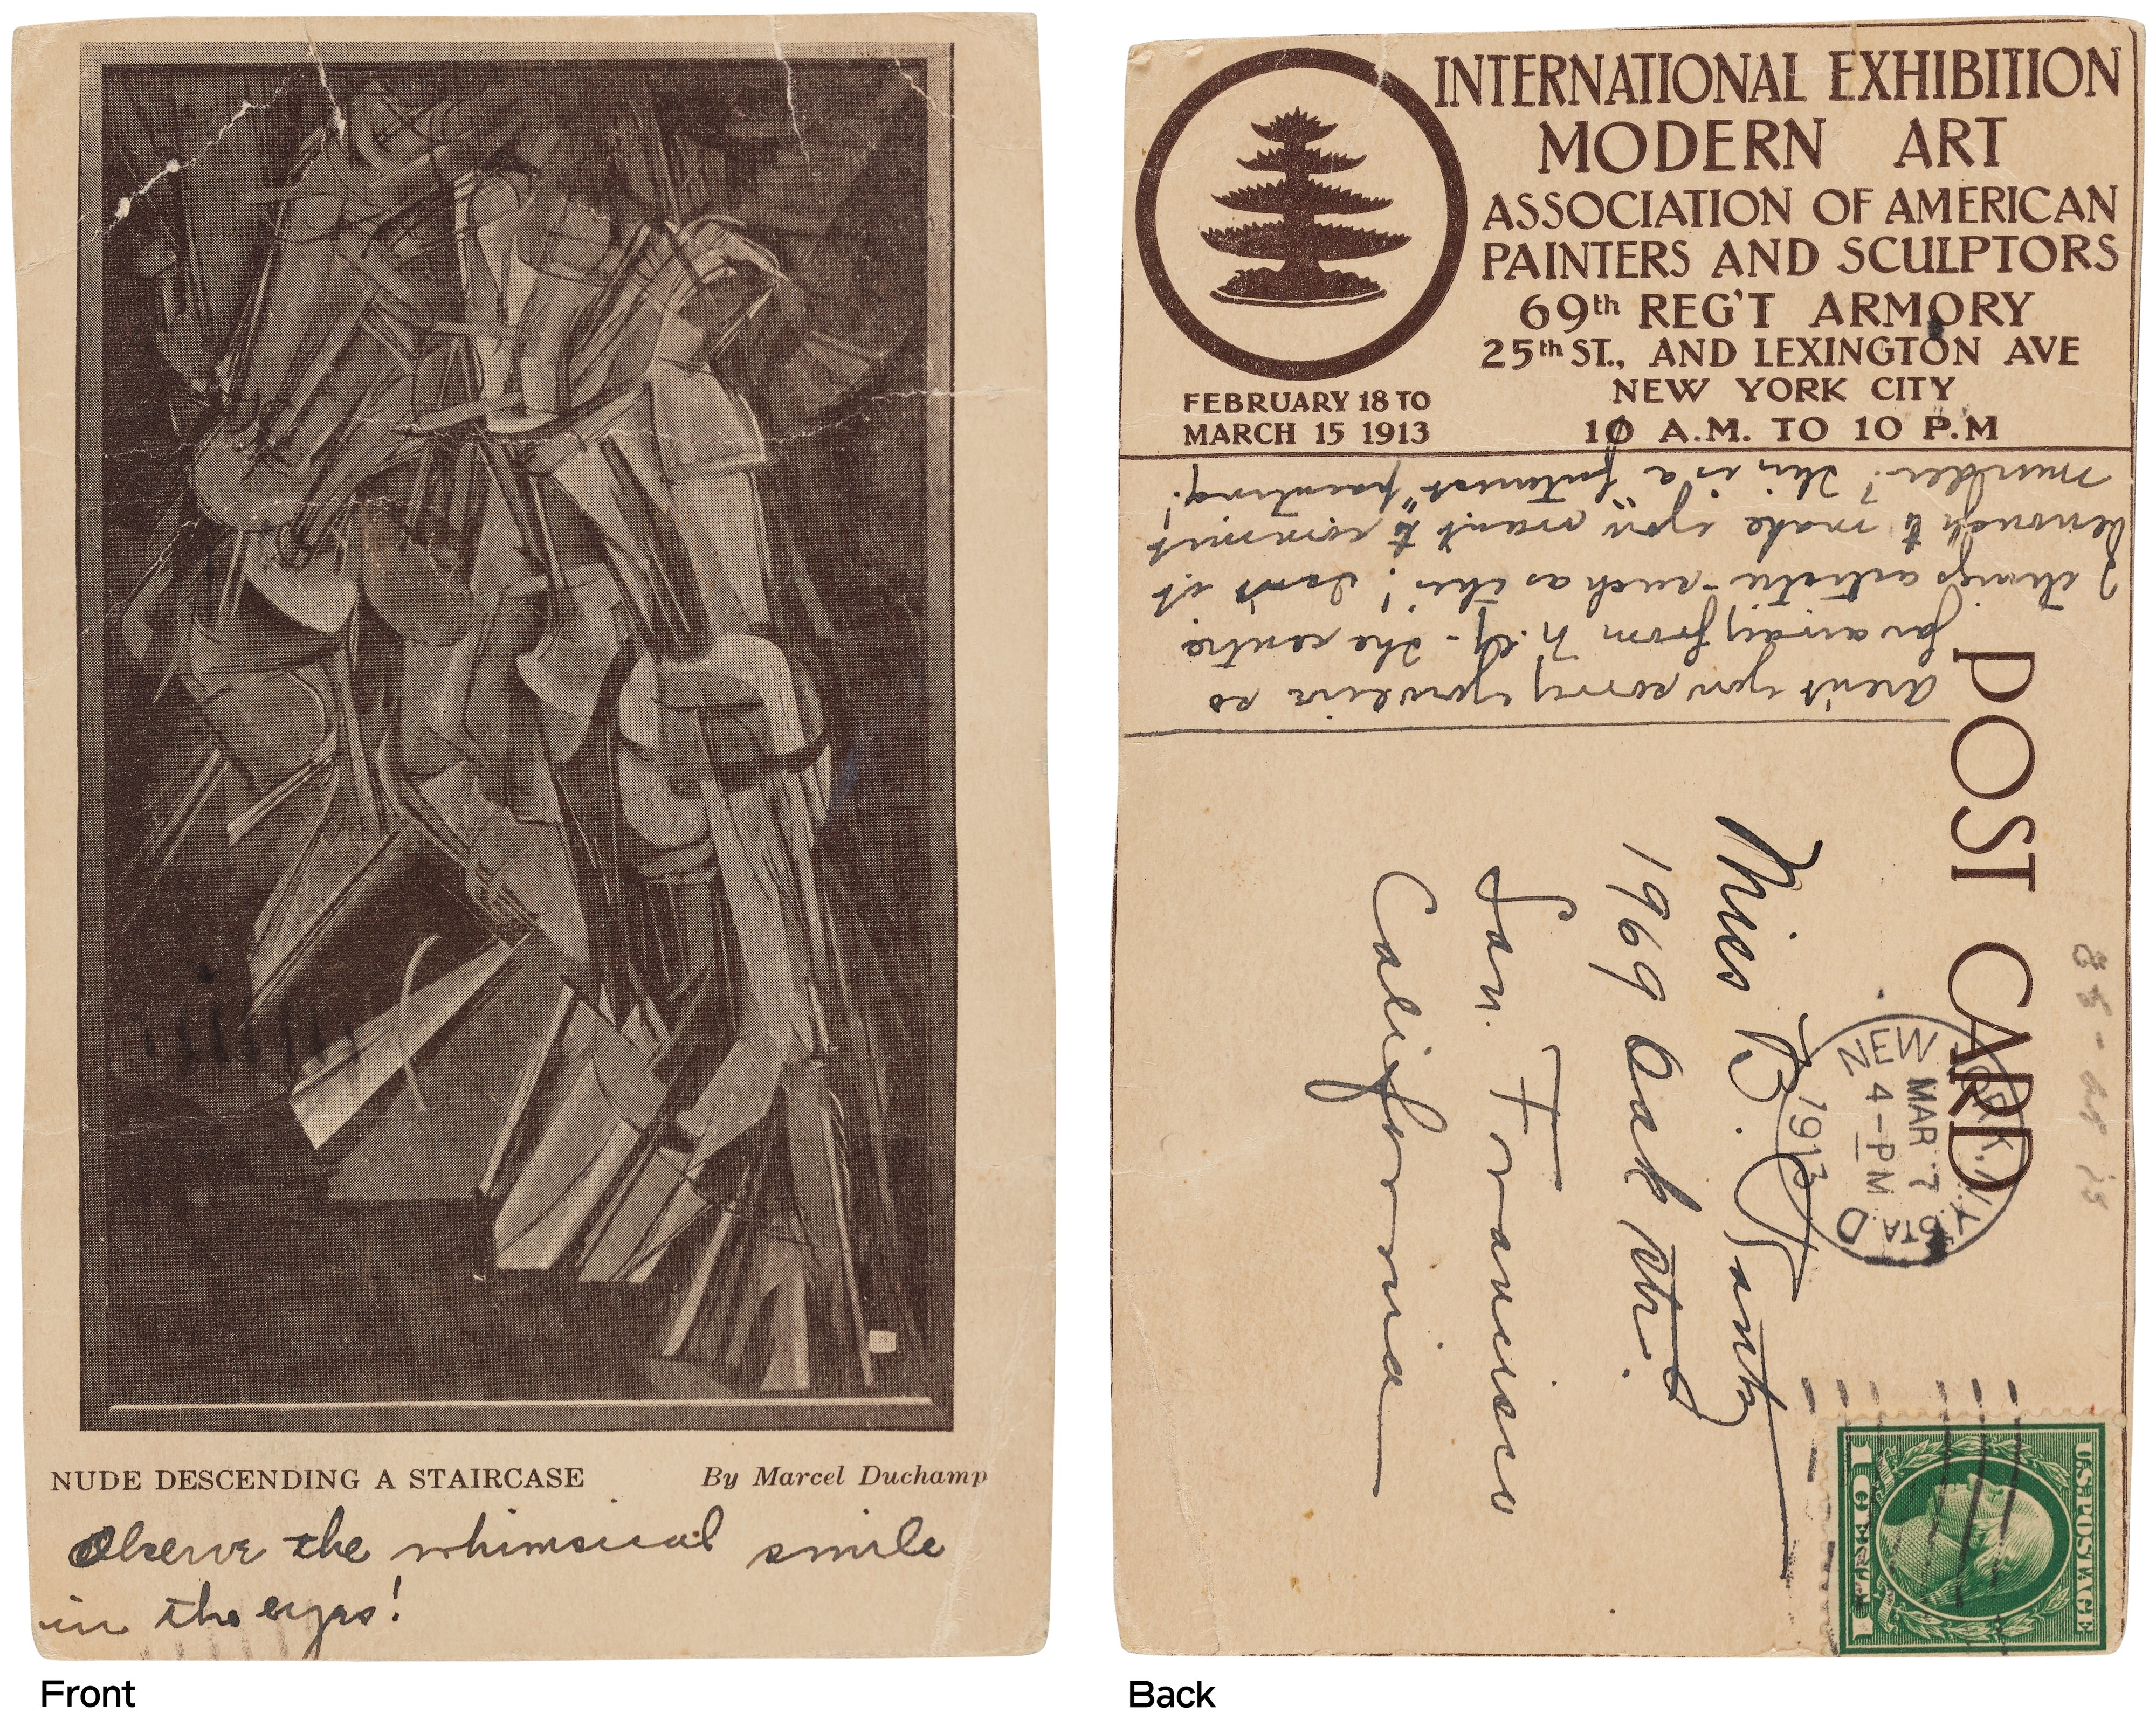 NUDE DESCENDING A STAIRCASE By Marcel Duchamp
Observe the whimsical smile
in the eyes!
Front
INTERNATIONAL EXHIBITION
MODERN ART
ASSOCIATION OF AMERICAN
PAINTERS AND SCULPTORS
69th REG'T ARMORY
25th ST., AND LEXINGTON AVE
NEW YORK CITY
10 A.M. TO 10 P.M
FEBRUARY 18 TO
MARCH 15 1913
Aren't you sorry you live so
far away from N.Y. - the centre
of things artistic - such as this! Isn't it
enough to make you want to commit
murder? This is a "futurist" painting!
POST CARD
NEW YORK, N.Y.
STA. D
MAR 7
4-PM
1913
Miss B.
1969 Oak Str.
San Francisco
California
U.S. POSTAGE
Back